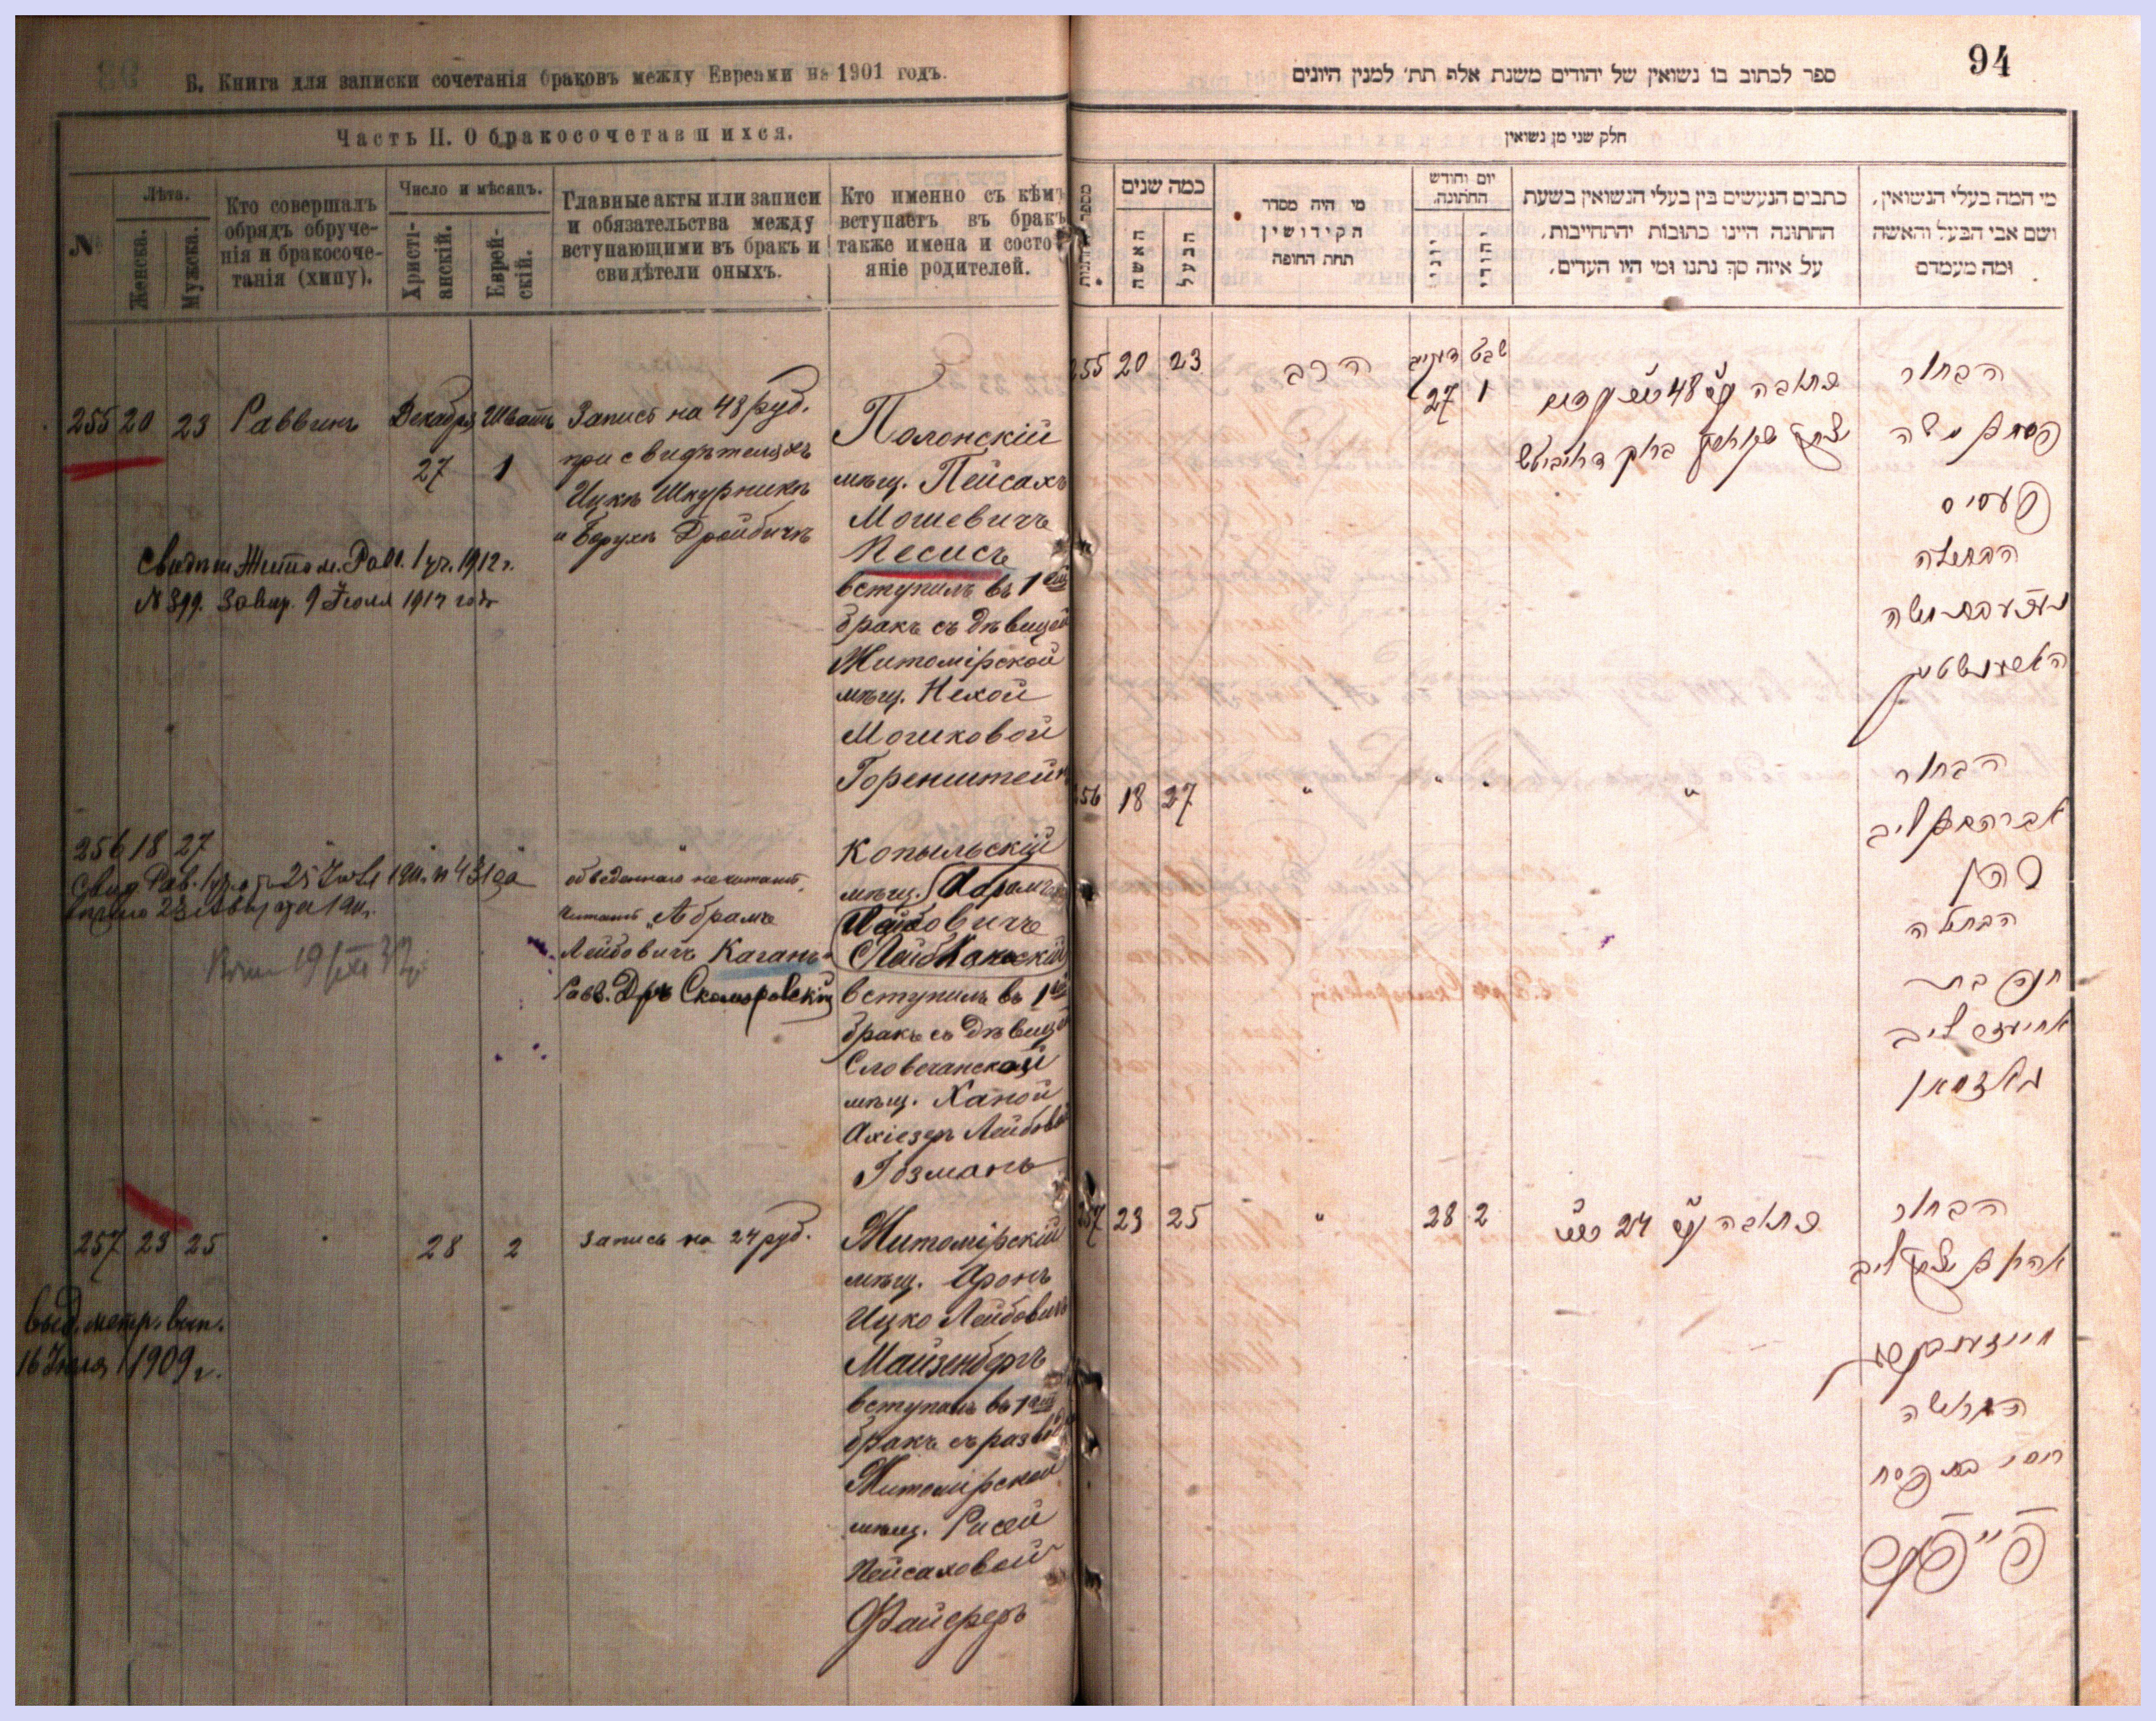 Б. Книга для записки сочетанія браковъ между Евреами на 1901 годъ.
Часть II. О бракосочетавшихся.
№
Лѣта.
Женска.
Мужска.
Кто совершалъ
обрядъ обруче-
нія и бракосоче-
танія (хипу).
Число и мѣсяцъ.
Христі-
анскій.
Еврей-
скій.
Главные акты или записи
и обязательства между
вступающими въ бракъ и
свидѣтели оныхъ.
Кто именно съ кѣмъ
вступаетъ въ бракъ
также имена и состо-
яніе родителей.
255 20 23 Раввинъ Декабря 27 Шватъ 1
Запись на 48 руб.
при свидѣтеляхъ
Ицкѣ Шкурникѣ
и Борухѣ
Полонскій
мѣщ. Пейсахъ
Мошевичъ
Песисъ
вступилъ въ 1ый
бракъ съ дѣвицей
Житомірской
мѣщ. Нехой
Мошковой
Горенштейнъ
Свидѣт. Житом. Равв. 1 уч. 1912 г.
№ 399. 9 Іюля 1914 года
256 18 27
обведеннаго не читать,
читать „Абрамъ
Лейбовичъ Каганъ“
Равв. Дръ Скоморовскій
Копыльскій
мѣщ. Абрамъ
вступилъ въ 1ый
бракъ съ дѣвицей
Словечанской
мѣщ. Ханой
Ахіезеръ Лейбовой
Гозманъ
257 23 25 " 28 2
Запись на 24 руб.
Житомірскій
мѣщ. Аронъ
Ицко Лейбовичъ
Майзенбергъ
вступилъ въ 1ый
бракъ съ развед
Житомірской
мѣщ. Рисей
Пейсаховой
Файферъ
Выд. метр. вып.
1909 г.
94
ספר לכתוב בו נשואין של יהודים משנת אלף תת׳ למנין היונים
חלק שני מן נשואין
כמה שנים
האשה
הבעל
מי היה מסדר
הקידושין
תחת החופה
יום וחודש
החתונה.
יוני
יהודי
כתבים הנעשים בין בעלי הנשואין בשעת
החתונה היינו כתובות יהתחייבות,
על איזה סך נתנו ומי היו העדים,
מי המה בעלי הנשואין,
ושם אבי הבעל והאשה
ומה מעמדם
255 20 23 הרב 27 שבט 1
כתובה על 48
הבחור
פסח ב משה
פעסיס
הבתולה
נעכע בת משה
256 18 27 " " " "
הבחור
אברהם ב ליב
כהן
הבתולה
חנה בת
אחיעזר ליב
גאזמאן
257 23 25 " 28 2
כתובה על 24
הבחור
אהרן ב יצחק ליב
הגרושה
ריסי בת פסח